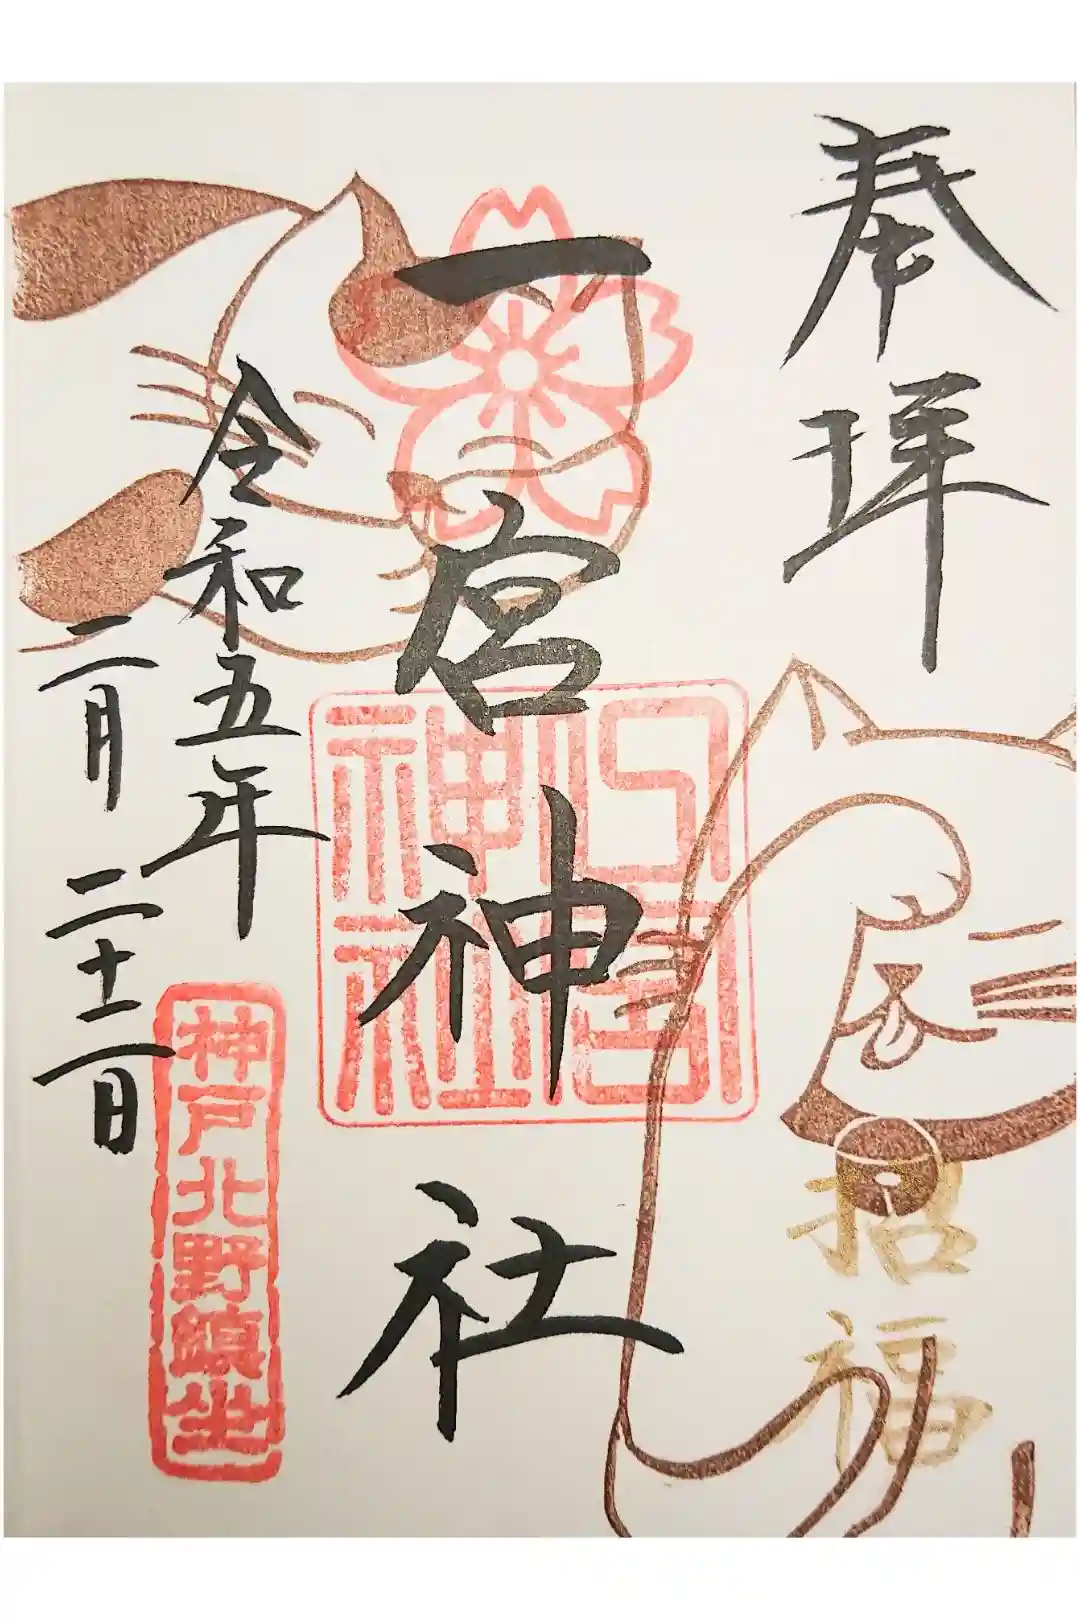 奉拝
招福
一宮神社
神社
令和五年
二月二十二日
神戸北野鎮坐